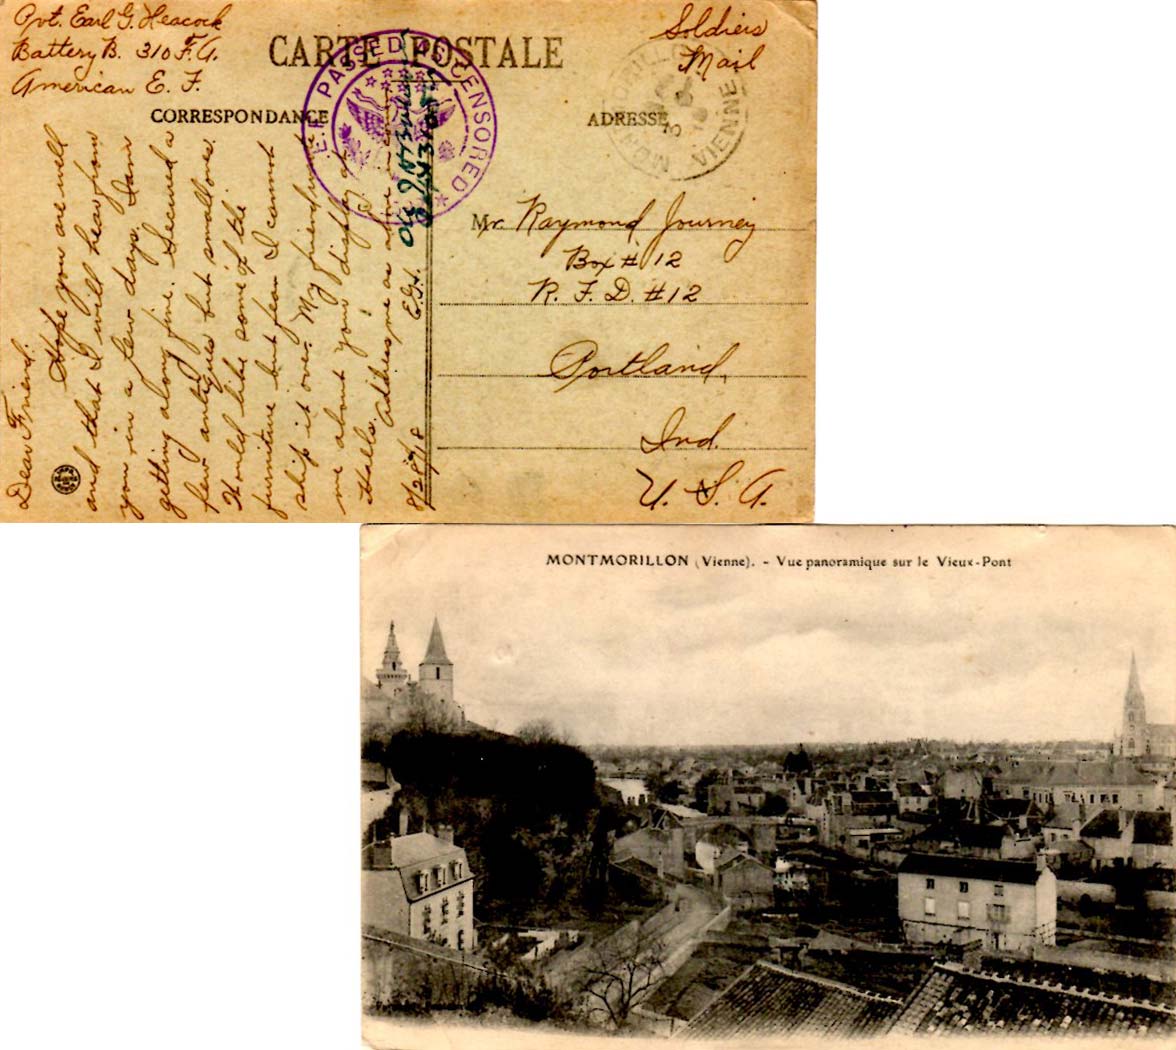 Pvt. Earl G. Heacock
Battery B. 310 F.A.
American E. F.
CARTE POSTALE
Soldiers
Mail
CORRESPONDANCE
ADRESSE
E.F. PASSED AS CENSORED
VIENNE
Dear Friend:
Hope you are well
and that I will hear from
you in a few days. I am
getting along fine. Secured a
few antiques but small ones.
Would like some of the
furniture but fear I cannot
ship it over. My friend wrote
me about your display of
Halls.
Address me as above
8/28/18 E.G.H.
Mr. Raymond Journey
Box # 12
R. F. D. # 12
Portland,
Ind.
U. S. A.
MONTMORILLON (Vienne). - Vue panoramique sur le Vieux-Pont